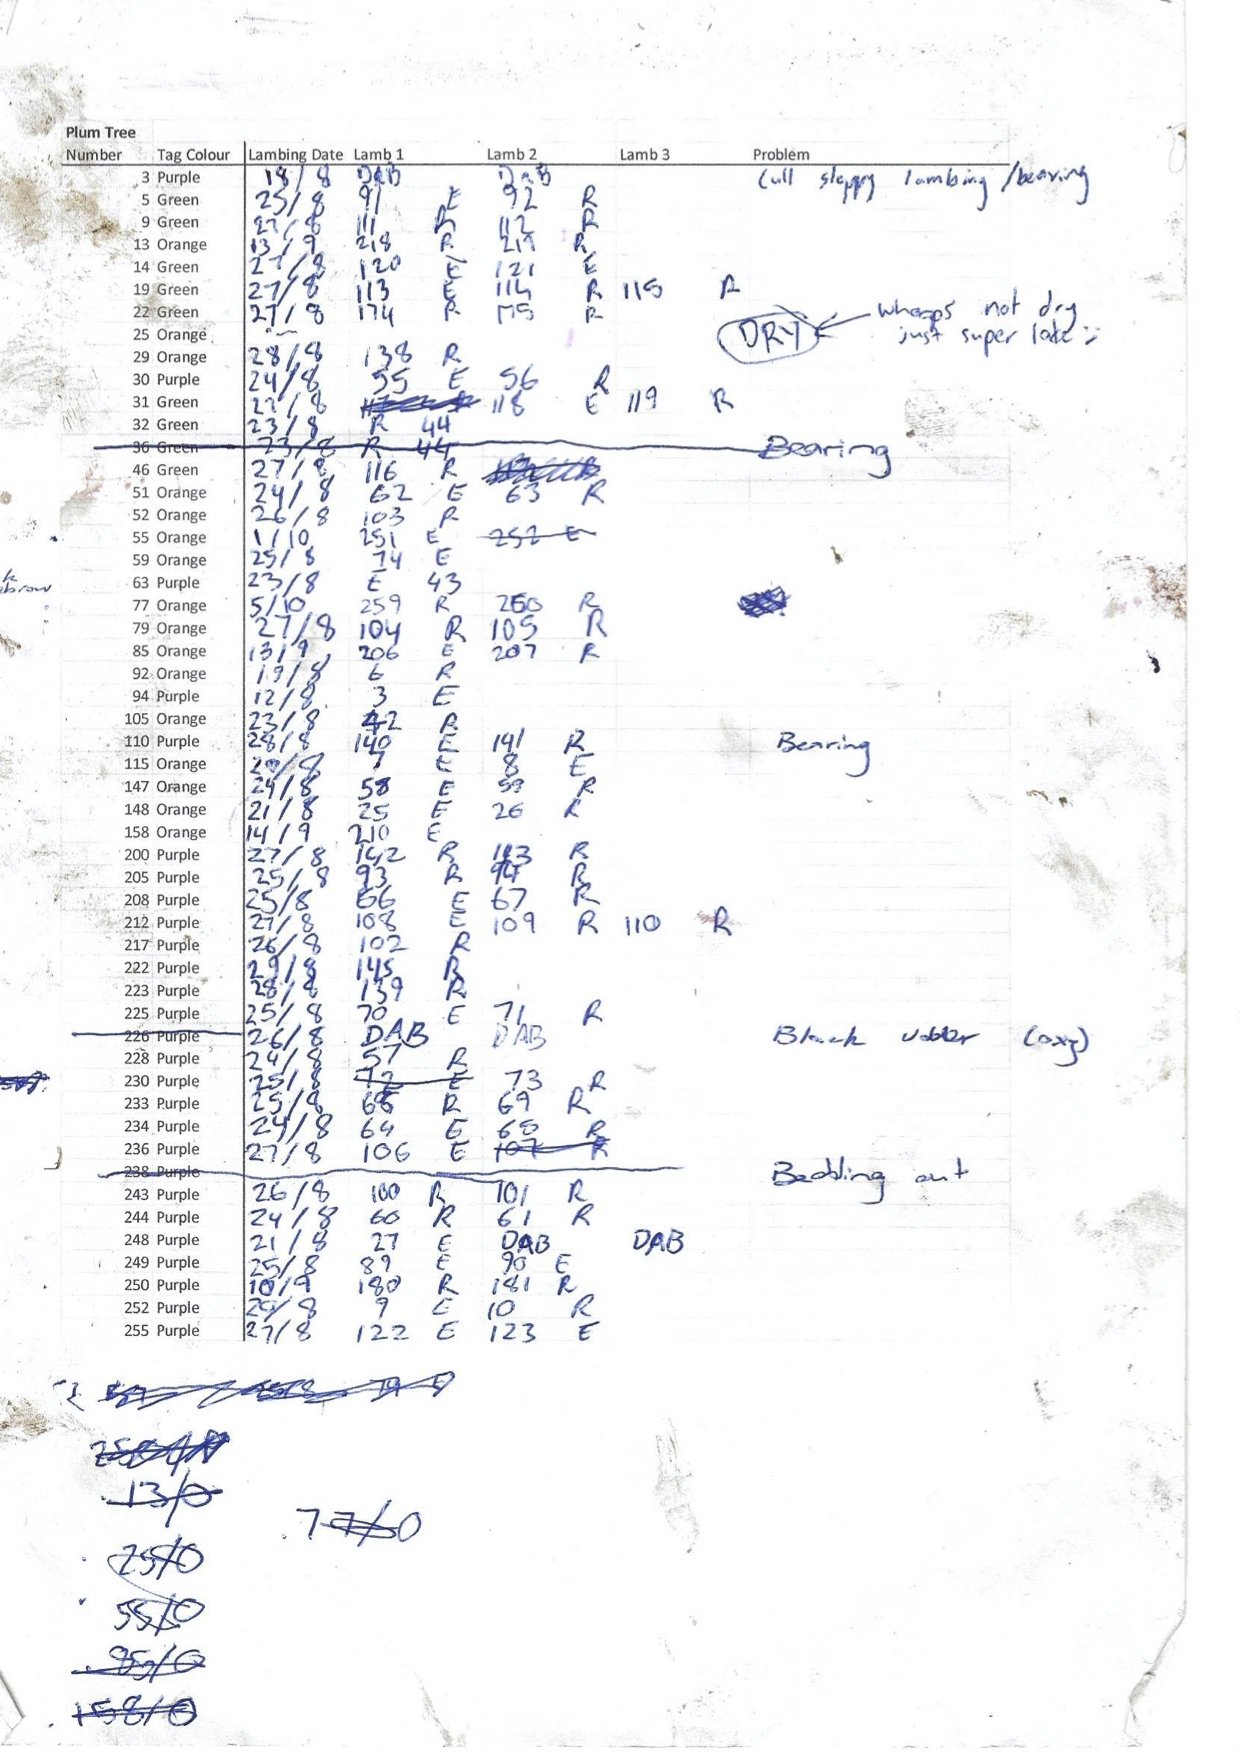 Plum Tree
Number Tag Colour Lambing Date Lamb 1 Lamb 2 Lamb 3 Problem
3 Purple 18/8 DAB DAB Cull sloppy lambing/bearing
5 Green 25/8 91 E 92 R
9 Green 27/8 111 R 112 R
13 Orange 13/9 218 R 219 R
14 Green 27/8 120 E 121 E
19 Green 27/8 113 E 114 R 115 R
22 Green 27/8 174 R 175 R
25 Orange DRY ← whoops not dry
just super late :-
29 Orange 28/8 138 R
30 Purple 24/8 55 E 56 R
31 Green 27/8 118 E 119 R
32 Green 23/8 R 44
36 Green 23/8 R 44 Bearing
46 Green 27/8 116 R
51 Orange 24/8 62 E 63 R
52 Orange 26/8 103 R
55 Orange 1/10 251 E 252 E
59 Orange 25/8 74 E
63 Purple 23/8 E 43
77 Orange 5/10 259 R 260 R
79 Orange 27/8 104 R 105 R
85 Orange 13/9 206 E 207 R
92 Orange 19/8 6 R
94 Purple 12/8 3 E
105 Orange 23/8 42 R
110 Purple 28/8 140 E 141 R Bearing
115 Orange 20/8 7 E 8 E
147 Orange 24/8 58 E 59 R
148 Orange 21/8 25 E 26 R
158 Orange 14/9 210 E
200 Purple 27/8 142 R 143 R
205 Purple 25/8 93 R 94 R
208 Purple 25/8 66 E 67 R
212 Purple 27/8 108 E 109 R 110 R
217 Purple 26/8 102 R
222 Purple 29/8 145 R
223 Purple 28/8 139 R
225 Purple 25/8 70 E 71 R
226 Purple 26/8 DAB DAB Black udder (oxy)
228 Purple 24/8 57 R
230 Purple 25/8 72 E 73 R
233 Purple 25/8 68 R 69 R
234 Purple 24/8 64 E 65 R
236 Purple 27/8 106 E 107 R
238 Purple Bedding out
243 Purple 26/8 100 R 101 R
244 Purple 24/8 60 R 61 R
248 Purple 21/8 27 E DAB DAB
249 Purple 25/8 89 E 90 E
250 Purple 10/9 180 R 181 R
252 Purple 20/8 9 E 10 R
255 Purple 27/8 122 E 123 E
13/O
77/O
25/O
55/O
85/O
158/O